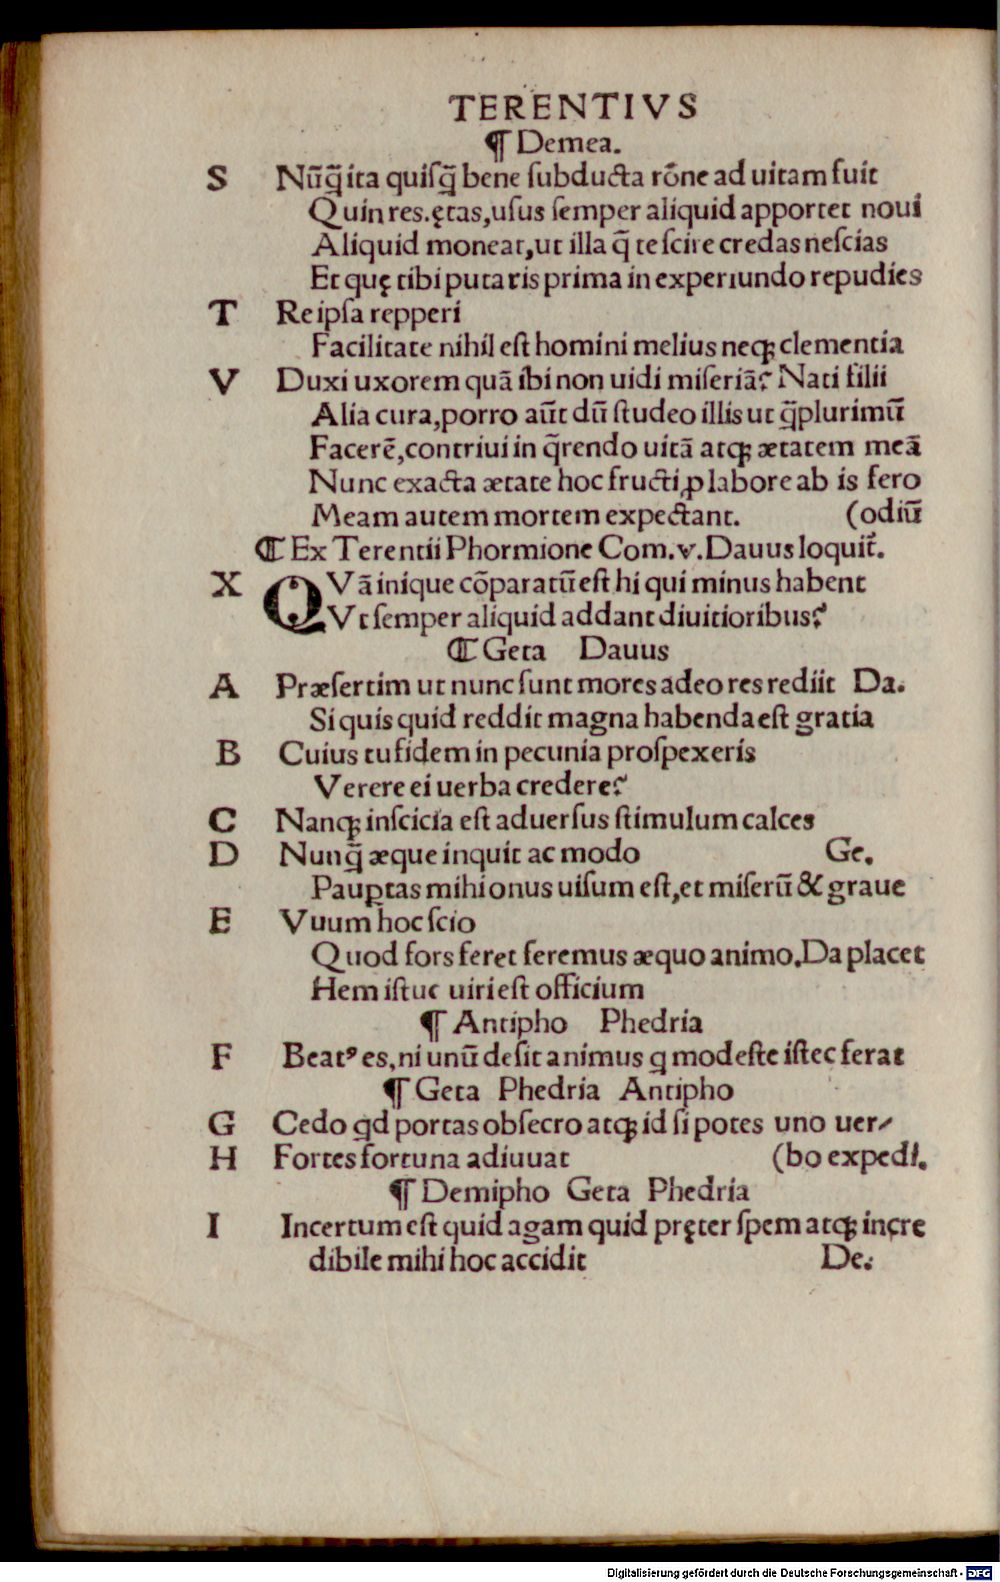 TERENTIVS
¶ Demea.
S Nū̄q̄ ita quiſq̄ bene ſubducta rōne ad uitam fuit
Quin res. ętas, uſus ſemper aliquid apportet noui
Aliquid moneat, ut illa q̄ te ſcire credas neſcias
Et quę tibi putaris prima in experiundo repudies
T Re ipſa repperi
Facilitate nihil eſt homini melius neqꝫ clementia
V Duxi uxorem quā ibi non uidi miſeriā? Nati filii
Alia cura, porro aūt dū ſtudeo illis ut q̄plurimū
Facerē, contriui in q̄rendo uitā atqꝫ ætatem meā
Nunc exacta ætate hoc fructi ꝓ labore ab is fero
Meam autem mortem expectant. (odiū
¶ Ex Terentii Phormione Com. v. Dauus loquit̄.
X QVā inique cōparatū eſt hi qui minus habent
Vt ſemper aliquid addant diuitioribus?
¶ Geta Dauus
A Præſertim ut nunc ſunt mores adeo res rediit Da.
Si quis quid reddit magna habenda eſt gratia
B Cuius tu fidem in pecunia proſpexeris
Verere ei uerba credere?
C Nanqꝫ inſcicia eſt aduerſus ſtimulum calces
D Nunq̄ æque inquit ac modo Ge.
Paup̱tas mihi onus uiſum eſt, et miſerū & graue
E Vuum hoc ſcio
Quod fors feret feremus æquo animo. Da placet
Hem iſtuc uiri eſt officium
¶ Antipho Phedria
F Beatꝰ es, ni unū deſit animus q modeſte iſtec ferat
¶ Geta Phedria Antipho
G Cedo qd portas obſecro atqꝫ id ſi potes uno uer⸗
H Fortes fortuna adiuuat (bo expedi.
¶ Demipho Geta Phedria
I Incertum eſt quid agam quid pręter ſpem atqꝫ incre
dibile mihi hoc accidit De.
Digitalisierung gefördert durch die Deutsche Forschungsgemeinschaft - DFG